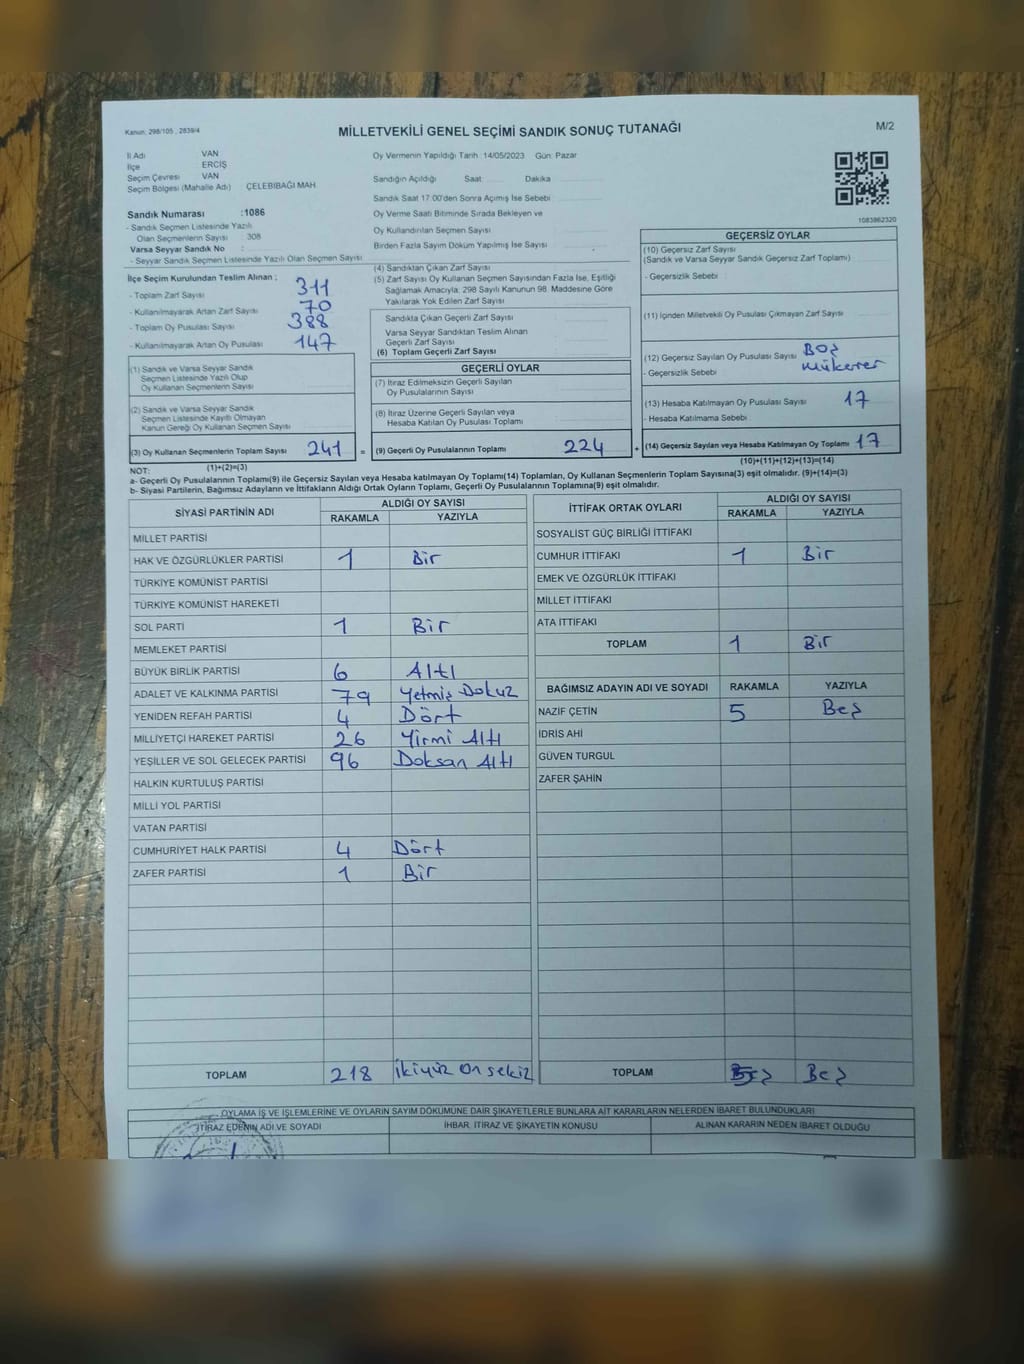 Kanun, 298/105 , 2839/4
MİLLETVEKİLİ GENEL SEÇİMİ SANDIK SONUÇ TUTANAĞI
M/2
İl Adı VAN
İlçe ERCİŞ
Seçim Çevresi VAN
Seçim Bölgesi (Mahalle Adı) ÇELEBİBAĞI MAH.
Sandık Numarası :1086
- Sandık Seçmen Listesinde Yazılı
Olan Seçmenlerin Sayısı : 308
Varsa Seyyar Sandık No :
- Seyyar Sandık Seçmen Listesinde Yazılı Olan Seçmen Sayısı
Oy Vermenin Yapıldığı Tarih : 14/05/2023 Gün: Pazar
Sandığın Açıldığı Saat: Dakika
Sandık Saat 17:00'den Sonra Açımış İse Sebebi
Oy Verme Saati Bitiminde Sırada Bekleyen ve
Oy Kullandırılan Seçmen Sayısı
Birden Fazla Sayım Döküm Yapılmış İse Sayısı
1083962320
İlçe Seçim Kurulundan Teslim Alınan :
- Toplam Zarf Sayısı 311
- Kullanılmayarak Artan Zarf Sayısı 70
- Toplam Oy Pusulası Sayısı 388
- Kullanılmayarak Artan Oy Pusulası 147
(1) Sandık ve Varsa Seyyar Sandık
Seçmen Listesinde Yazılı Olup
Oy Kullanan Seçmenlerin Sayısı
(2) Sandık ve Varsa Seyyar Sandık
Seçmen Listesinde Kayıtlı Olmayan
Kanun Gereği Oy Kullanan Seçmen Sayısı
(3) Oy Kullanan Seçmenlerin Toplam Sayısı 241 =
(1)+(2)=(3)
(4) Sandıktan Çıkan Zarf Sayısı
(5) Zarf Sayısı Oy Kullanan Seçmen Sayısından Fazla İse, Eşitliği
Sağlamak Amacıyla; 298 Sayılı Kanunun 98. Maddesine Göre
Yakılarak Yok Edilen Zarf Sayısı
Sandıkta Çıkan Geçerli Zarf Sayısı
Varsa Seyyar Sandıktan Teslim Alınan
Geçerli Zarf Sayısı
(6) Toplam Geçerli Zarf Sayısı
GEÇERLİ OYLAR
(7) İtiraz Edilmeksizin Geçerli Sayılan
Oy Pusulalarının Sayısı
(8) İtiraz Üzerine Geçerli Sayılan veya
Hesaba Katılan Oy Pusulası Toplamı
(9) Geçerli Oy Pusulalarının Toplamı 224 +
GEÇERSİZ OYLAR
(10) Geçersiz Zarf Sayısı
(Sandık ve Varsa Seyyar Sandık Geçersiz Zarf Toplamı)
- Geçersizlik Sebebi :
(11) İçinden Milletvekili Oy Pusulası Çıkmayan Zarf Sayısı
(12) Geçersiz Sayılan Oy Pusulası Sayısı Boş
- Geçersizlik Sebebi mükerrer
(13) Hesaba Katılmayan Oy Pusulası Sayısı 17
- Hesaba Katılmama Sebebi
(14) Geçersiz Sayılan veya Hesaba Katılmayan Oy Toplamı 17
(10)+(11)+(12)+(13)=(14)
NOT:
a- Geçerli Oy Pusulalarının Toplamı(9) ile Geçersiz Sayılan veya Hesaba katılmayan Oy Toplamı(14) Toplamları, Oy Kullanan Seçmenlerin Toplam Sayısına(3) eşit olmalıdır. (9)+(14)=(3)
b- Siyasi Partilerin, Bağımsız Adayların ve İttifakların Aldığı Ortak Oyların Toplamı, Geçerli Oy Pusulalarının Toplamına(9) eşit olmalıdır.
SİYASİ PARTİNİN ADI ALDIĞI OY SAYISI
RAKAMLA YAZIYLA
MİLLET PARTİSİ
HAK VE ÖZGÜRLÜKLER PARTİSİ 1 Bir
TÜRKİYE KOMÜNİST PARTİSİ
TÜRKİYE KOMÜNİST HAREKETİ
SOL PARTİ 1 Bir
MEMLEKET PARTİSİ
BÜYÜK BİRLİK PARTİSİ 6 Altı
ADALET VE KALKINMA PARTİSİ 79 Yetmiş Dokuz
YENİDEN REFAH PARTİSİ 4 Dört
MİLLİYETÇİ HAREKET PARTİSİ 26 Yirmi Altı
YEŞİLLER VE SOL GELECEK PARTİSİ 96 Doksan Altı
HALKIN KURTULUŞ PARTİSİ
MİLLİ YOL PARTİSİ
VATAN PARTİSİ
CUMHURİYET HALK PARTİSİ 4 Dört
ZAFER PARTİSİ 1 Bir
TOPLAM 218 İkiyüz On sekiz
İTTİFAK ORTAK OYLARI ALDIĞI OY SAYISI
RAKAMLA YAZIYLA
SOSYALİST GÜÇ BİRLİĞİ İTTİFAKI
CUMHUR İTTİFAKI 1 Bir
EMEK VE ÖZGÜRLÜK İTTİFAKI
MİLLET İTTİFAKI
ATA İTTİFAKI
TOPLAM 1 Bir
BAĞIMSIZ ADAYIN ADI VE SOYADI RAKAMLA YAZIYLA
NAZİF ÇETİN 5 Beş
İDRİS AHİ
GÜVEN TURGUL
ZAFER ŞAHİN
TOPLAM Beş
OYLAMA İŞ VE İŞLEMLERİNE VE OYLARIN SAYIM DÖKÜMÜNE DAİR ŞİKAYETLERLE BUNLARA AİT KARARLARIN NELERDEN İBARET BULUNDUKLARI
İTİRAZ EDENİN ADI VE SOYADI İHBAR, İTİRAZ VE ŞİKAYETİN KONUSU ALINAN KARARIN NEDEN İBARET OLDUĞU